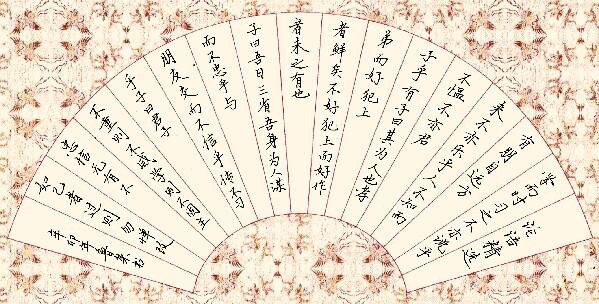 论语精选
学而时习之不亦说乎
有朋自远方
来不亦乐乎人不知而
不愠不亦君
子乎有子曰其为人也孝
弟而好犯上
者鲜矣不好犯上而好作
者未之有也
子曰吾日三省吾身为人谋
而不忠乎与
朋友交而不信乎传不习
乎子曰君子
不重则不威学则不固主
忠信无有不
如己者过则勿惮改
辛卯年夏日